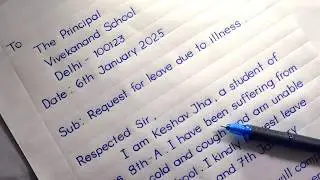 To
The Principal
Vivekanand School
Delhi:- 100123
Date: 6th January 2025
Sub:- Request for leave due to illness.
Respected Sir,
I am Keshav Jha, a student of
8th-A. I have been suffering from
cold and cough and am unable
school. I kindly request leave
and 7th January
will